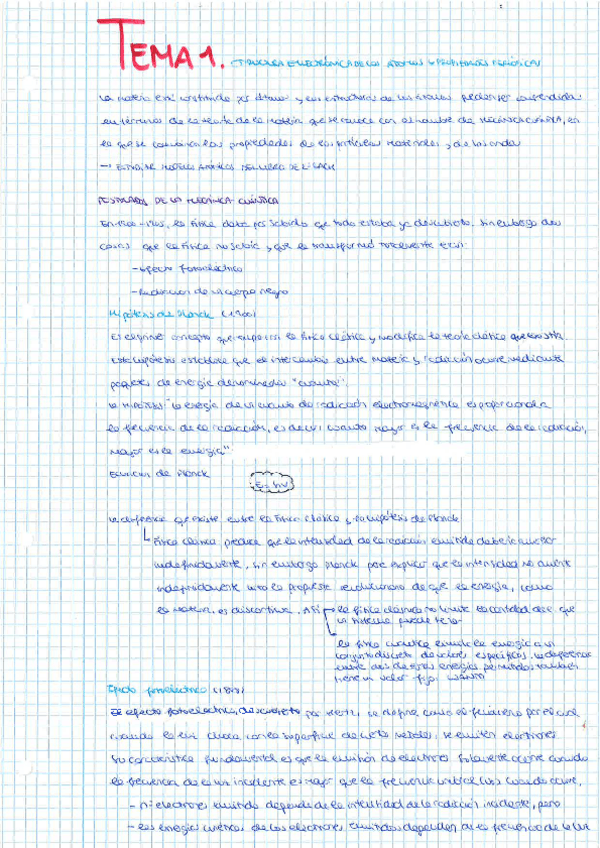 TEMA 1. ESTRUCTURA ELECTRÓNICA DE LOS ÁTOMOS Y PROPIEDADES PERIÓDICAS
La materia está constituida por átomos y las estructuras de los átomos pueden ser comprendidas
en términos de la teoría de la materia que se conoce con el nombre de MECÁNICA CUÁNTICA, en
la que se combinan las propiedades de las partículas materiales y de las ondas
POSTULADOS DE LA MECÁNICA CUÁNTICA
En 1900-1905, la física daba por sabido que todo estaba ya descubierto. Sin embargo dos
cosas que la física no sabía y que la transformó totalmente eran:
- efecto fotoeléctrico
- Radiación de un cuerpo negro
Hipótesis de Planck (1900)
Es el primer concepto que rompe con la física clásica y modifica la teoría clásica
Esta hipótesis establece que el intercambio entre materia y radiación ocurre mediante
paquetes de energía denominados "cuantos".
La HIPÓTESIS: "La energía de un cuanto de radiación electromagnética es proporcional a
la frecuencia de la radiación, es decir cuanto mayor es la frecuencia de la radiación,
mayor es la energía."
Ecuación de Planck E=hν
La diferencia que existe entre la física clásica y la hipótesis de Planck
Física clásica predice que la intensidad de la radiación emitida debería aumentar
indefinidamente, sin embargo Planck para explicar que la intensidad no aumente
indefinidamente hizo la propuesta revolucionaria de que la energía, como
la materia, es discontinua. Así
la física clásica no limita la cantidad de E que
un sistema puede tener
la física cuántica limita la energía a un
conjunto discreto de valores específicos, la diferencia
entre dos de estas energías permitidas también
tiene un valor fijo: cuanto
Efecto fotoeléctrico
El efecto fotoeléctrico, descubierto por Hertz, se define como el fenómeno por el cual
cuando la luz choca con la superficie de ciertos metales, se emiten electrones
Su característica fundamental es que la emisión de electrones solamente ocurre cuando
la frecuencia de la luz incidente es mayor que la frecuencia umbral. Cuando ocurre,
- nº electrones emitidos depende de la intensidad de la radiación incidente, pero
- las energías cinéticas de los electrones emitidos dependen de la frecuencia de la luz